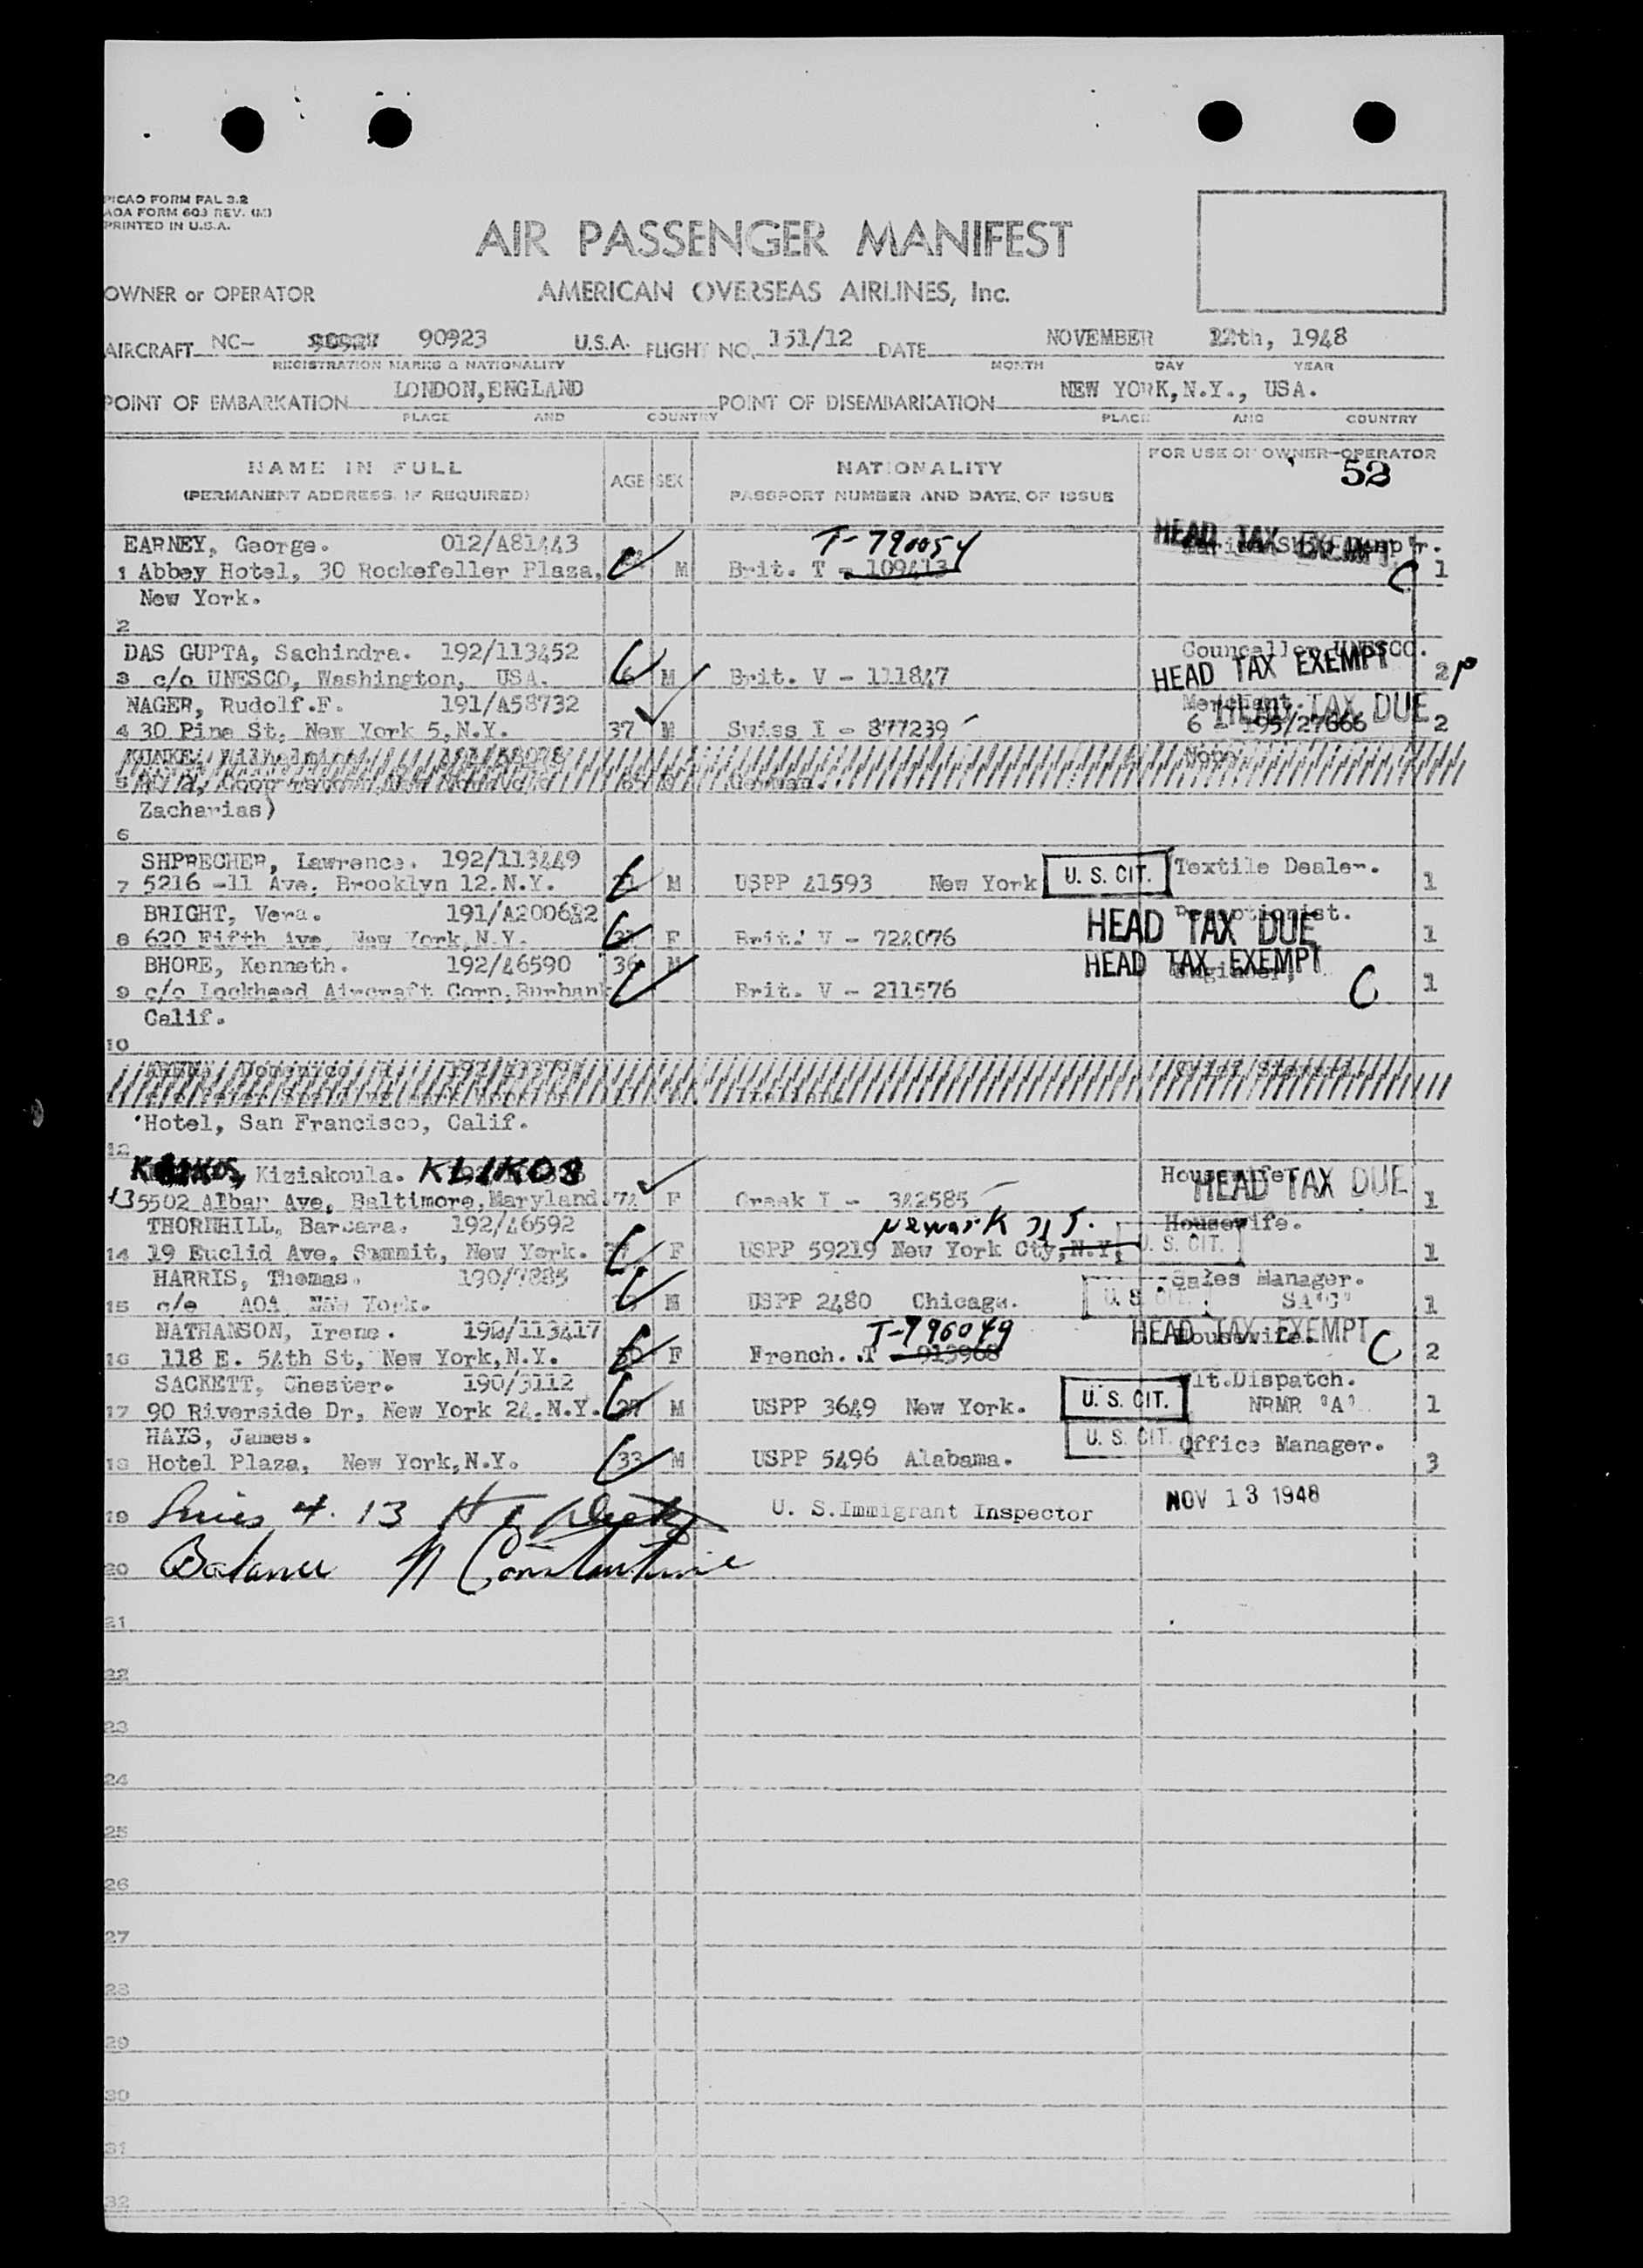 PICAO FORM FAL 3.2
AOA FORM 603 REV.
PRINTED IN U.S.A.
AIR PASSENGER MANIFEST
OWNER or OPERATOR AMERICAN OVERSEAS AIRLINES, Inc.
AIRCRAFT NC- 90923 U.S.A. FLIGHT NO. 151/12 DATE NOVEMBER 12th, 1948
REGISTRATION MARKS & NATIONALITY MONTH DAY YEAR
POINT OF EMBARKATION LONDON, ENGLAND POINT OF DISEMBARKATION NEW YORK, N.Y., USA.
PLACE AND COUNTRY PLACE AND COUNTRY
NAME IN FULL AGE SEX NATIONALITY FOR USE OF OWNER-OPERATOR
(PERMANENT ADDRESS, IF REQUIRED) PASSPORT NUMBER AND DATE OF ISSUE 52
EARNEY, George. 012/A81443 T-790054 HEAD TAX EXEMPT
1 Abbey Hotel, 30 Rockefeller Plaza, M Brit. T - 109413 C 1
New York.
2
DAS GUPTA, Sachindra. 192/113452 Councellor UNESCO.
3 c/o UNESCO, Washington, USA. M Brit. V - 111847 HEAD TAX EXEMPT 2
NAGER, Rudolf.F. 191/A58732 Merchant. HEAD TAX DUE
4 30 Pine St, New York 5, N.Y. 37 M Swiss I - 877239 2
5
Zacharias)
6
SHPRECHER, Lawrence. 192/113449 U. S. CIT. Textile Dealer.
7 5216 -11 Ave, Brooklyn 12. N.Y. M USPP 41593 New York 1
BRIGHT, Vera. 191/A200682 Receptionist.
8 620 Fifth Ave, New York, N.Y. F Brit. V - 722076 HEAD TAX DUE 1
BHORE, Kenneth. 192/46590 36 M HEAD TAX EXEMPT Engineer.
9 c/o Lockheed Aircraft Corp, Burbank Brit. V - 211576 C 1
Calif.
10
Hotel, San Francisco, Calif.
12
Kiziakoula. KLIKOS Housewife. HEAD TAX DUE
13 5502 Alban Ave, Baltimore, Maryland 74 F Greek I - 342585 1
THORNHILL, Barbara. 192/46592 Newark N J. Housewife.
14 19 Euclid Ave, Summit, New York. F USPP 59219 New York Cty, N.Y, U. S. CIT. 1
HARRIS, Thomas. 190/7885 Sales Manager.
15 c/o AOA New York. M USPP 2480 Chicago. U. S. CIT. SA"C" 1
NATHANSON, Irene. 192/113417 T-796049 HEAD TAX EXEMPT Housewife.
16 118 E. 54th St, New York, N.Y. F French. T - 913968 C 2
SACKETT, Chester. 190/3112 Flt.Dispatch.
17 90 Riverside Dr, New York 24. N.Y. M USPP 3649 New York. U. S. CIT. NRMR "A" 1
HAYS, James. U. S. CIT. Office Manager.
18 Hotel Plaza, New York, N.Y. 33 M USPP 5496 Alabama. 3
19 Lines 4. 13 U. S. Immigrant Inspector NOV 13 1948
20 Balance N Constantine
21
22
23
24
25
26
27
28
29
30
31
32